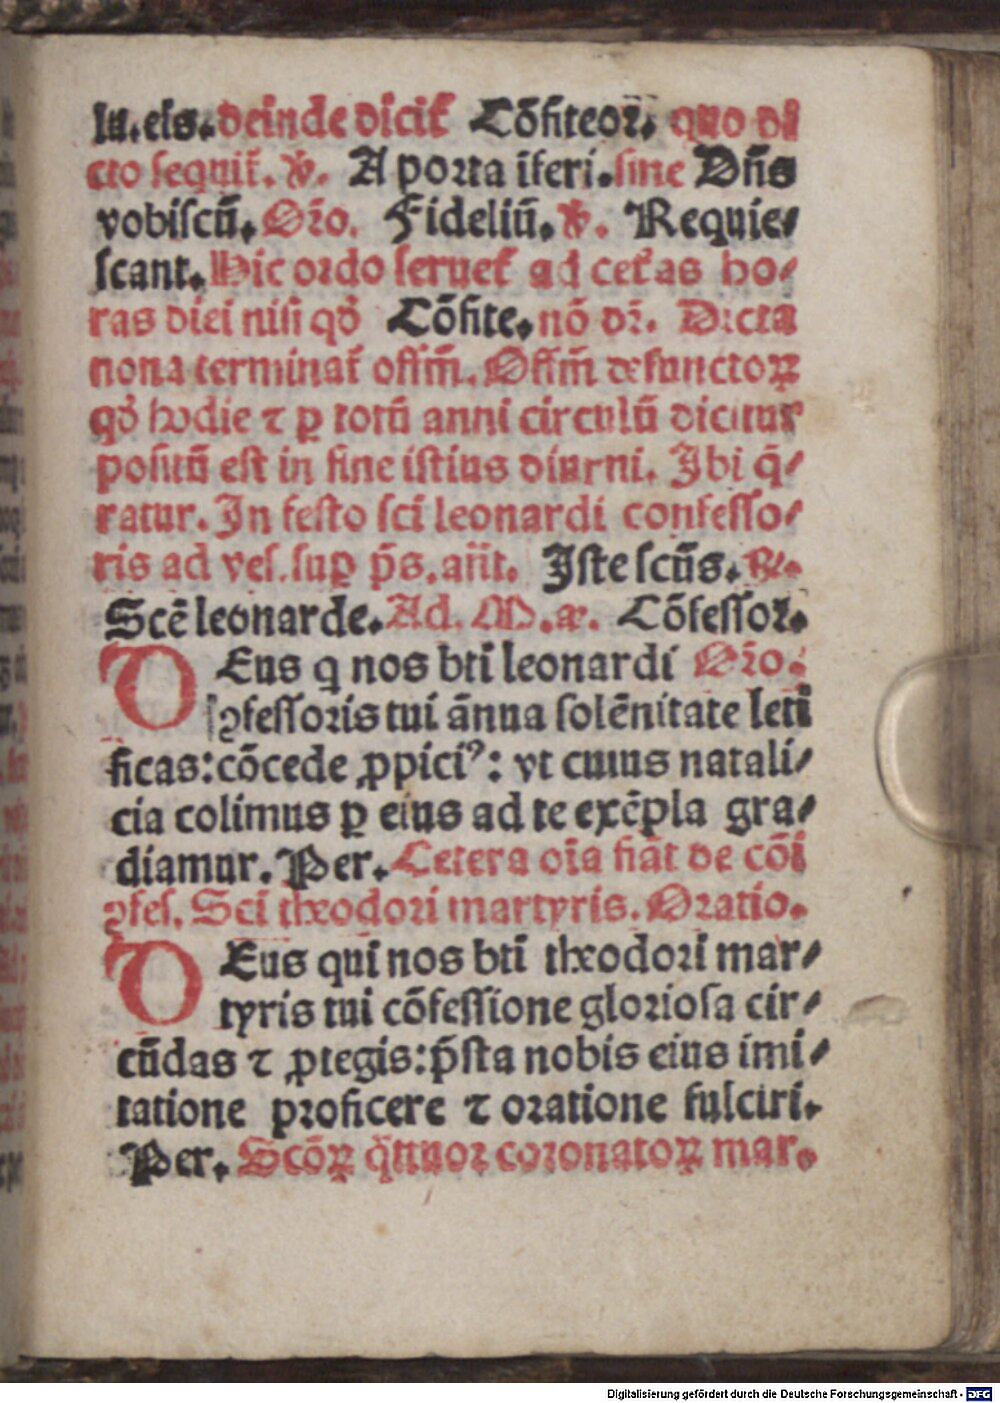 lu. eis. deinde dicit᷑ Cōfiteoꝛ. quo di
cto sequit᷑. ℣. A poꝛta īferi. sine Dn̄s
vobiſcū. Oꝛ̄o. Fideliū. ℣. Requie⸗
ſcant. Hic oꝛdo ſeruet᷑ ad cet᷑as ho⸗
ras diei niſi qꝺ̄ Cōfite. nō dꝛ̄. Dicta
nona terminat᷑ offm̄. Offm̄ defunctoꝝ
qꝺ̄ hodie ⁊ ꝑ totū anni circulū dicitur
poſitū eſt in fine iſtius diurni. Ibi q̄⸗
ratur. In feſto ſcī leonardi confeſſo⸗
ris ad veſ. ſuꝑ p̄s. an̄t. Iſte ſcūs. ℟.
Scē leonarde. Ad. M. æ. Cōfeſſoꝛ.
DEus q nos btī leonardi Oꝛ̄o.
ꝯfeſſoꝛis tui ānua ſolēnitate leti
ficas: cōcede ꝓpiciꝰ: vt cuius natali⸗
cia colimus ꝑ eius ad te exēpla gra⸗
diamur. Per. Cetera oīa fiāt de cōi
ꝯfeſ. Scī theodoꝛi martyris. Oꝛatio.
DEus qui nos btī theodoꝛi mar⸗
tyris tui cōfeſſione gloꝛioſa cir⸗
cūdas ⁊ ꝓtegis: p̄ſta nobis eius imi⸗
tatione pꝛoficere ⁊ oꝛatione fulciri.
Per. Scōꝝ q̄ttuoꝛ coꝛonatoꝝ mar.
Digitalisierung gefördert durch die Deutsche Forschungsgemeinschaft - DFG